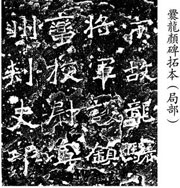 爨龍顏碑拓本（局部）
宋故龍驤
將軍護鎮
蠻校尉寧
州刺史邛